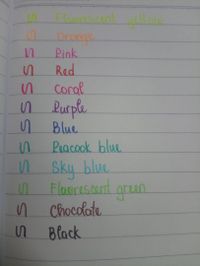 Fluorescent yellow
Orange
Pink
Red
Coral
Purple
Blue
Peacock blue
Sky blue
Fluorescent green
Chocolate
Black